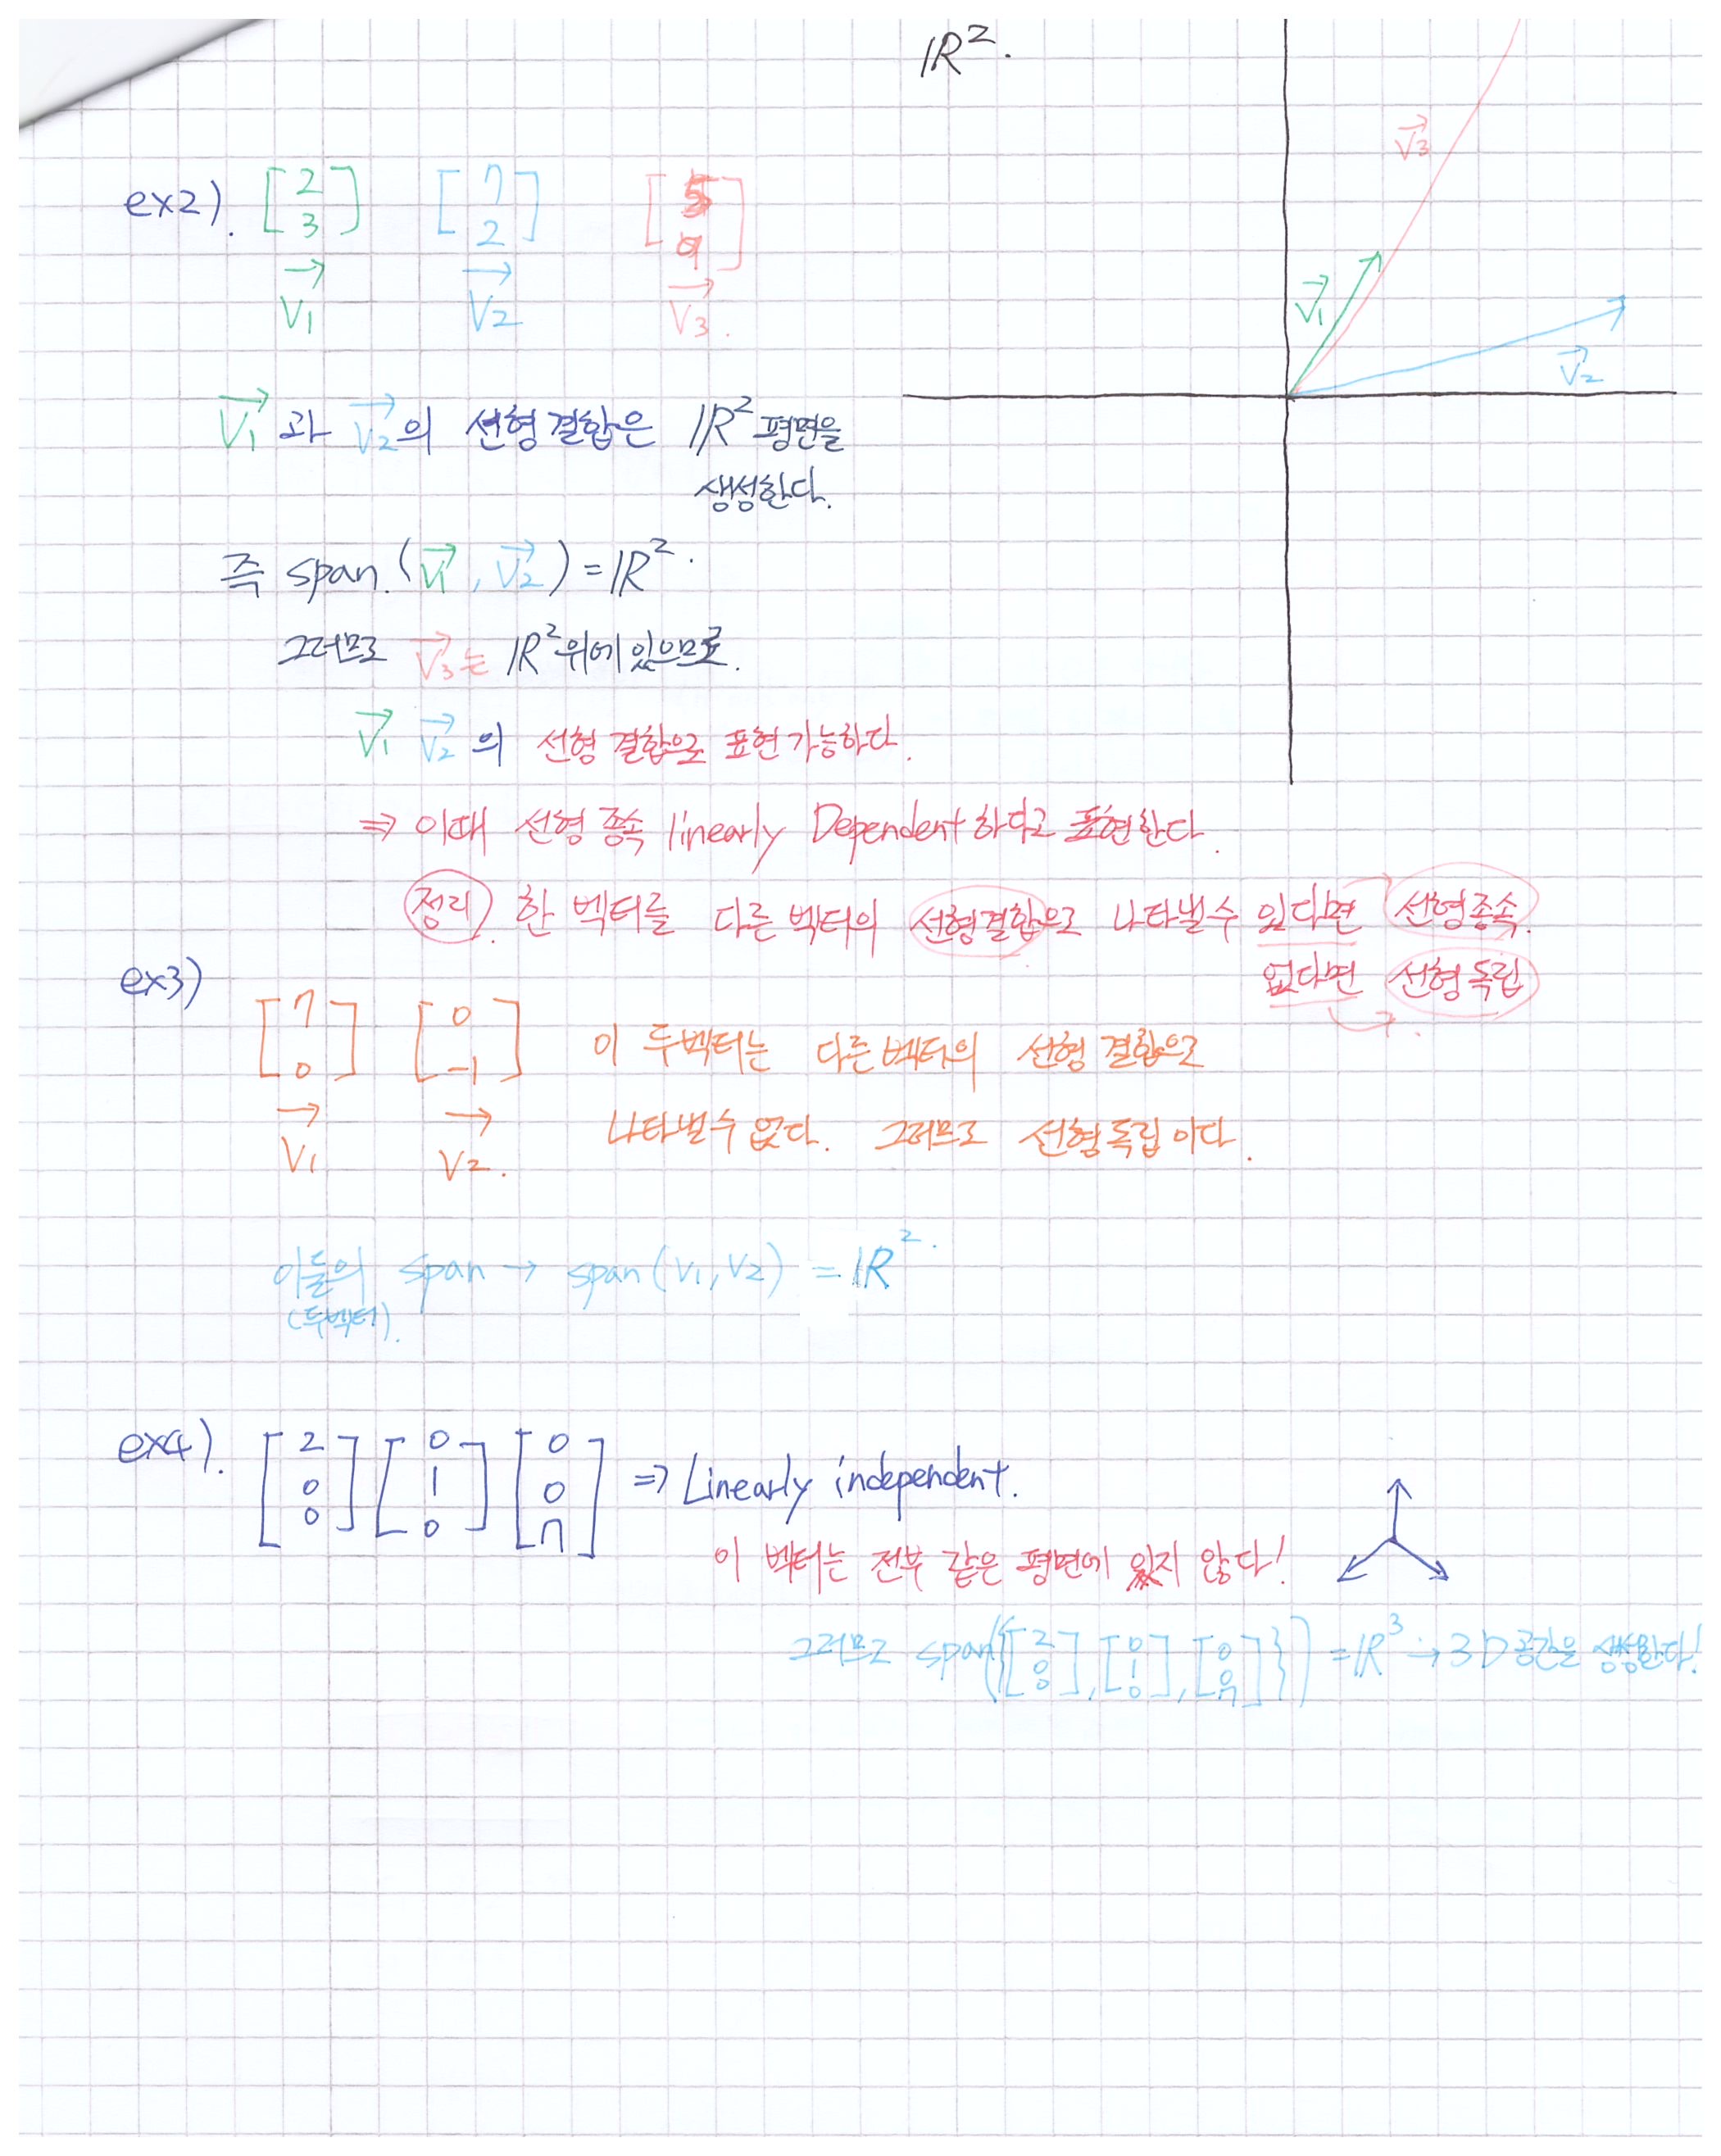 IR².
ex2). [2 3] [7 2] [5 9]
V₁ V₂ V₃.
V₃
V₁
V₂
V₁과 V₂의 선형 결합은 IR² 평면을
생성한다.
즉 span.(V₁, V₂) = IR².
그러므로 V₃는 IR² 위에 있으므로.
V₁ V₂의 선형 결합으로 표현 가능하다.
⇒ 이때 선형 종속 linearly Dependent 하다고 표현한다.
정리. 한 벡터를 다른 벡터의 선형결합으로 나타낼수 있다면 선형종속.
없다면 선형독립.
ex3)
[7 0] [0 -1] 이 두벡터는 다른 벡터의 선형 결합으로
V₁ V₂. 나타낼수 없다. 그러므로 선형독립이다.
이들의 span → span(V₁, V₂) = IR².
(두벡터).
ex4). [2 0 0] [0 1 0] [0 0 7] ⇒ Linearly independent.
이 벡터는 전부 같은 평면에 있지 않다!
그러므로 span({[2 0 0], [0 1 0], [0 0 7]}) = IR³ → 3D 공간을 생성한다!